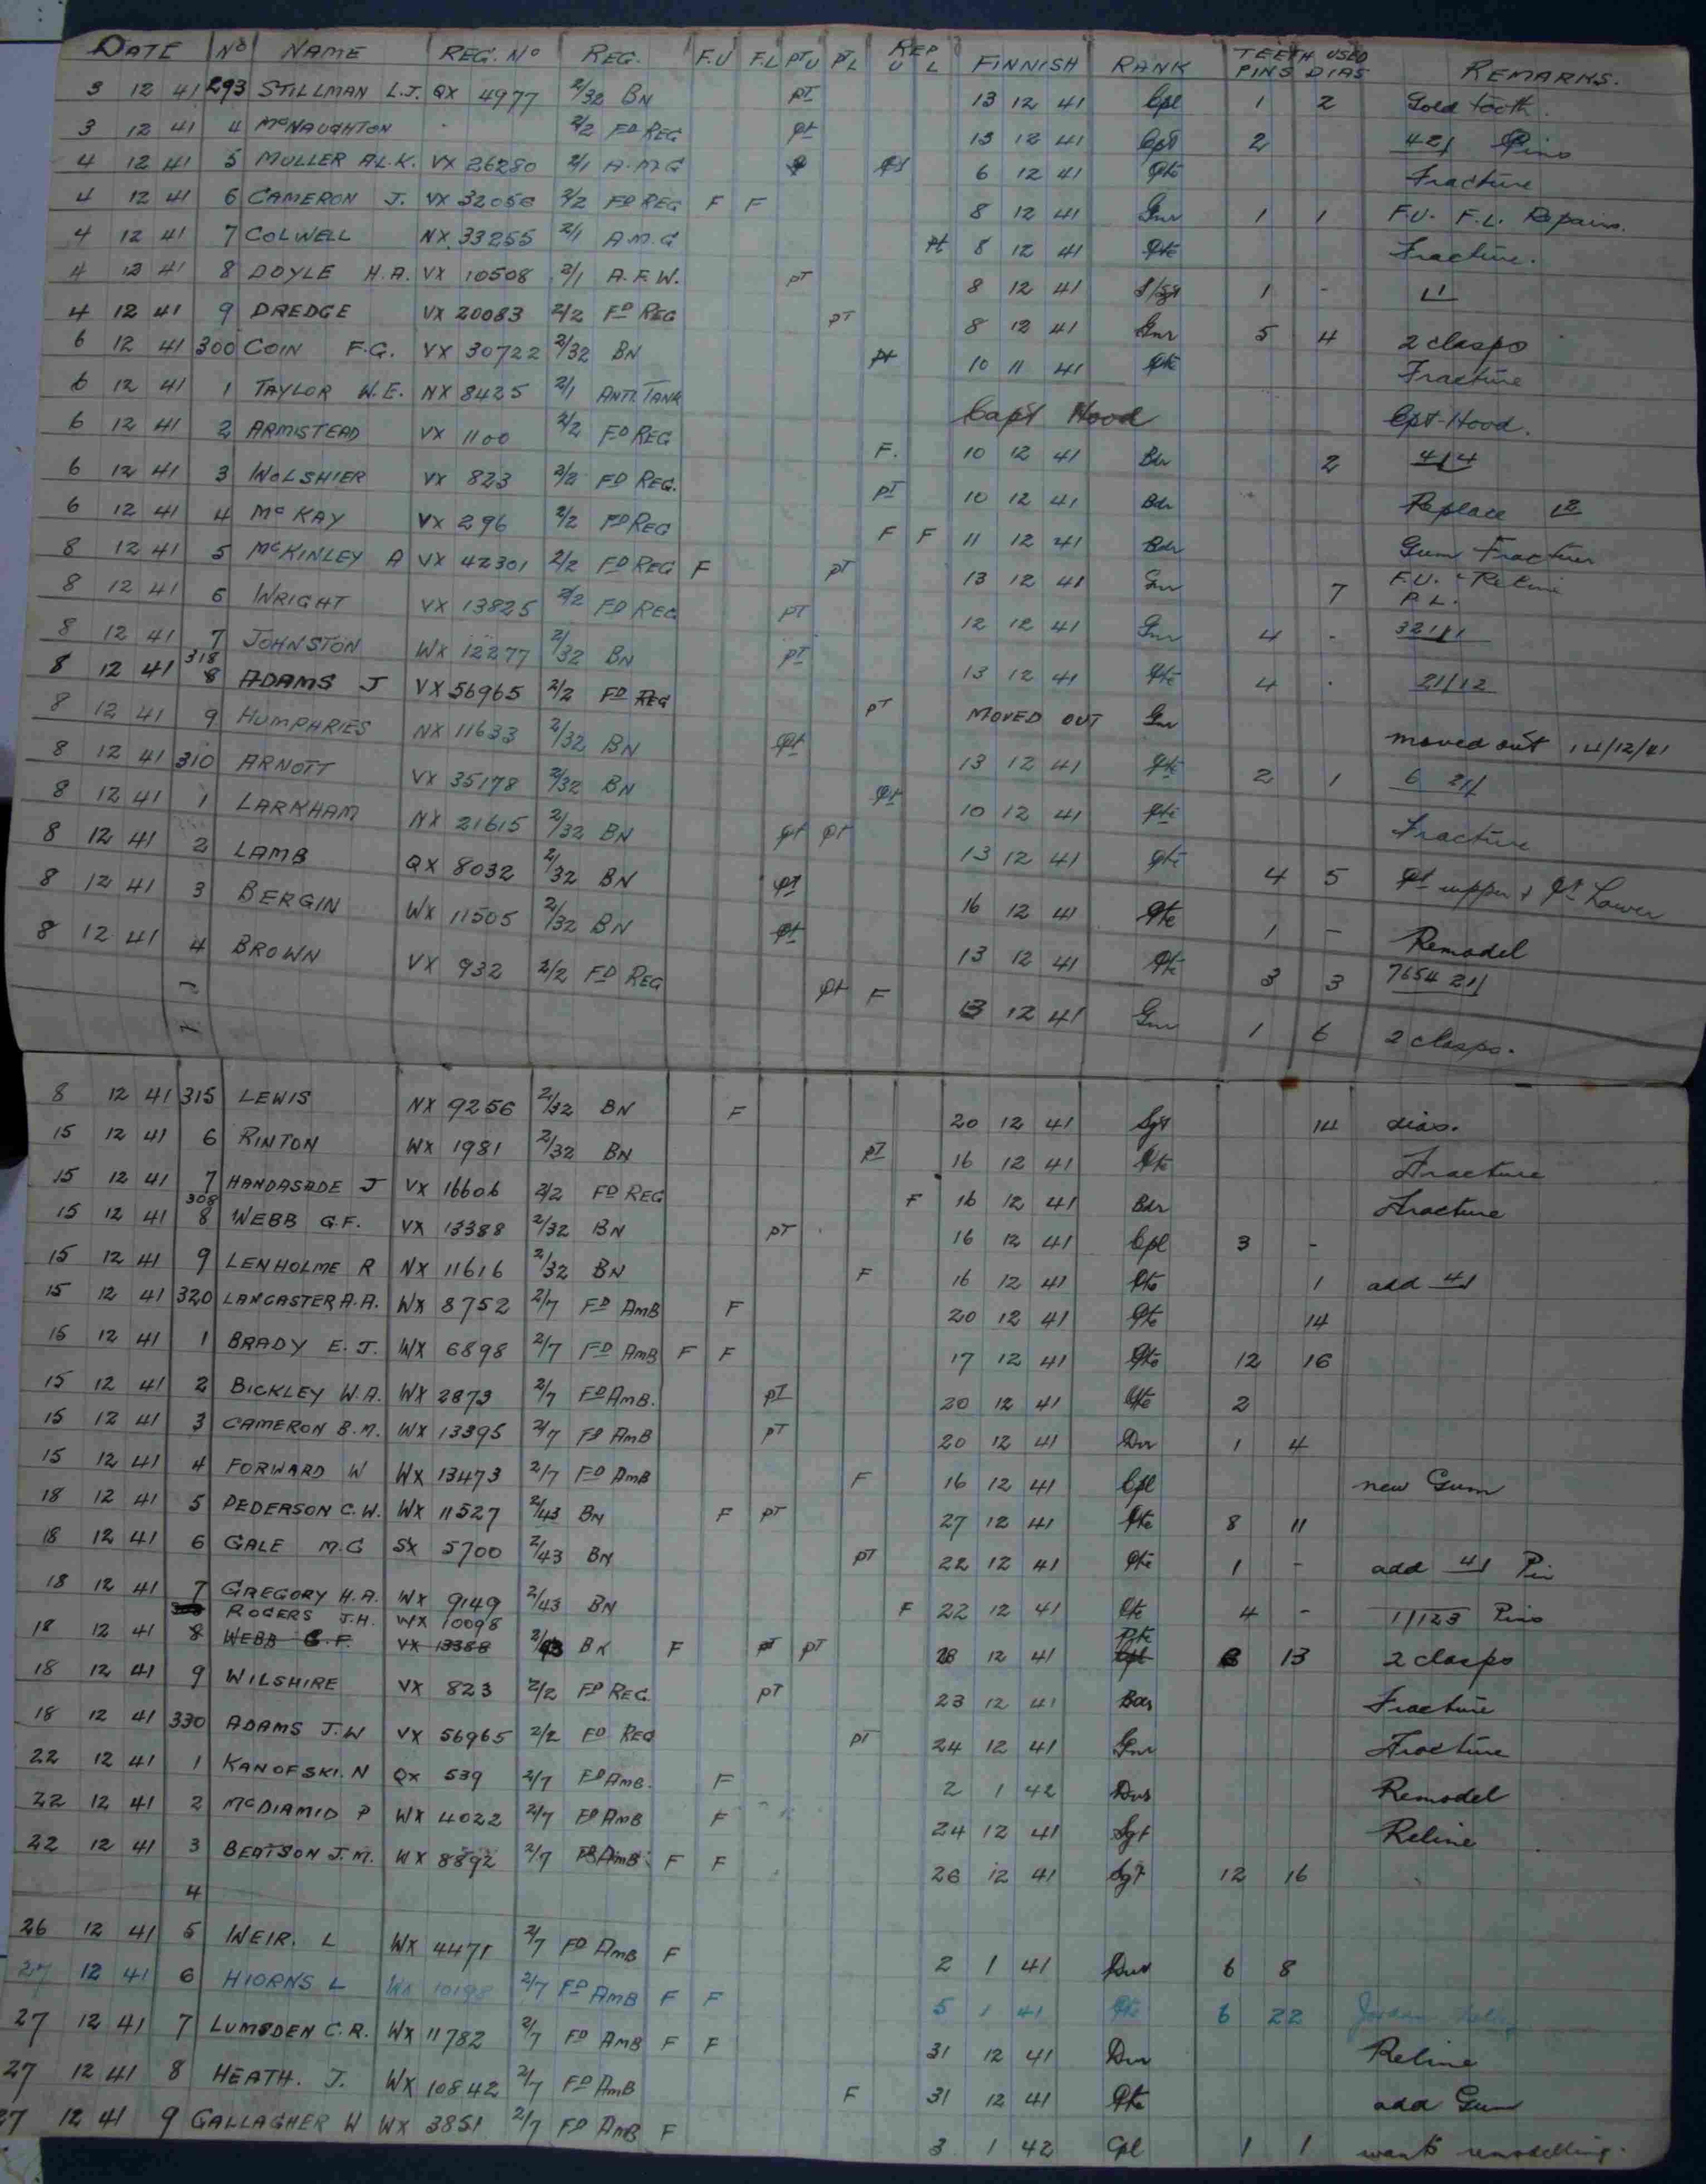 DATE No NAME REG. No REG. F.U F.L PT U PT L REP U L FINNISH RANK TEETH USED PINS DIAS REMARKS.
3 12 41 293 STILLMAN L.J. QX 4977 2/32 BN PT 13 12 41 Cpl 1 2 Gold tooth.
3 12 41 4 McNAUGHTON 2/2 FD REG Pt 13 12 41 Cpt 2 421 Pins
4 12 41 5 MULLER AL.K. VX 26280 2/1 A.M.G Pt 6 12 41 Pte Fracture
4 12 41 6 CAMERON J. VX 32056 2/2 FD REG F F 8 12 41 Gnr 1 1 F.U. F.L. Repairs.
4 12 41 7 COLWELL NX 33255 2/1 A.M.G Pt 8 12 41 Pte Fracture.
4 12 41 8 DOYLE H.A. VX 10508 2/1 A.F.W. PT 8 12 41 S/Sgt 1 - L1
4 12 41 9 DREDGE VX 20083 2/2 FD REG PT 8 12 41 Gnr 5 4 2 clasps
6 12 41 300 COIN F.G. VX 30722 2/32 BN Pt 10 11 41 Pte Fracture
6 12 41 1 TAYLOR W.E. NX 8425 2/1 ANTI TANK Capt Hood Cpt-Hood.
6 12 41 2 ARMISTEAD VX 1100 2/2 FD REG F. 10 12 41 Bdr 2 4/4
6 12 41 3 WOLSHIER VX 823 2/2 FD REG. PT 10 12 41 Bdr Replace L2
6 12 41 4 McKAY VX 296 2/2 FD REG F F 11 12 41 Bdr Gum Fracture
8 12 41 5 McKINLEY A VX 42301 2/2 FD REG F PT 13 12 41 Gnr 7 F.U. & Reline P.L.
8 12 41 6 WRIGHT VX 13825 2/2 FD REG PT 12 12 41 Gnr 4 - 321/1
8 12 41 7 JOHNSTON WX 12277 2/32 BN PT 13 12 41 Pte 4 . 21/12
8 12 41 318 8 ADAMS J VX 56965 2/2 FD REG PT MOVED OUT Gnr moved out 14/12/41
8 12 41 9 HUMPHRIES NX 11633 2/32 BN Pt 13 12 41 Pte 2 1 6 21/
8 12 41 310 ARNOTT VX 35178 2/32 BN Pt 10 12 41 Pte Fracture
8 12 41 1 LARKHAM NX 21615 2/32 BN Pt Pt 13 12 41 Pte 4 5 Pt upper & Pt Lower
8 12 41 2 LAMB QX 8032 2/32 BN PT 16 12 41 Pte 1 - Remodel
8 12 41 3 BERGIN WX 11505 2/32 BN Pt 13 12 41 Pte 3 3 7654 21/
8 12 41 4 BROWN VX 932 2/2 FD REG Pt F 13 12 41 Gnr 1 6 2 clasps.
8 12 41 315 LEWIS NX 9256 2/32 BN F 20 12 41 Sgt 14 dias.
15 12 41 6 RINTON WX 1981 2/32 BN PT 16 12 41 Pte Fracture
15 12 41 7 HANDASRDE J VX 16606 2/2 FD REG F 16 12 41 Bdr Fracture
15 12 41 308 8 WEBB G.F. VX 13388 2/32 BN PT 16 12 41 Cpl 3 -
15 12 41 9 LENHOLME R NX 11616 2/32 BN F 16 12 41 Pte 1 add 4/
15 12 41 320 LANCASTER A.A. WX 8752 2/7 FD AMB F 20 12 41 Pte 14
15 12 41 1 BRADY E.J. WX 6898 2/7 FD AMB F F 17 12 41 Pte 12 16
15 12 41 2 BICKLEY W.A. WX 2873 2/7 FD AMB. PT 20 12 41 Pte 2
15 12 41 3 CAMERON B.M. WX 13395 2/7 FD AMB PT 20 12 41 Dvr 1 4
15 12 41 4 FORWARD W WX 13473 2/7 FD AMB F 16 12 41 Cpl new Gum
18 12 41 5 PEDERSON C.W. WX 11527 2/43 BN F PT 27 12 41 Pte 8 11
18 12 41 6 GALE M.G SX 5700 2/43 BN PT 22 12 41 Pte 1 - add 4/ Pin
18 12 41 7 GREGORY H.A. WX 9149 2/43 BN F 22 12 41 Pte 4 - 1/123 Pins
ROGERS J.H. WX 10098 Pte
18 12 41 8 WEBB G.F. VX 13388 2/43 BN F PT PT 28 12 41 Cpl 13 2 clasps
18 12 41 9 WILSHIRE VX 823 2/2 FD REG PT 23 12 41 Bdr Fracture
18 12 41 330 ADAMS J.W VX 56965 2/2 FD REG PT 24 12 41 Gnr Fracture
22 12 41 1 KANOFSKI. N QX 539 2/7 FD AMB. F 2 1 42 Dvr Remodel
22 12 41 2 McDIAMID P WX 4022 2/7 FD AMB F 24 12 41 Sgt Reline
22 12 41 3 BEATSON J.M. WX 8892 2/7 FD AMB F F 26 12 41 Sgt 12 16
4
26 12 41 5 WEIR. L WX 4471 2/7 FD AMB F 2 1 41 Dvr 6 8
27 12 41 6 HIORNS L WX 10198 2/7 FD AMB F F 5 1 41 Pte 6 22
27 12 41 7 LUMSDEN C.R. WX 11782 2/7 FD AMB F F 31 12 41 Dvr Reline
27 12 41 8 HEATH. J. WX 10842 2/7 FD AMB F 31 12 41 Pte add Gum
27 12 41 9 GALLAGHER W WX 3851 2/7 FD AMB F 3 1 42 Cpl 1 1 wants remodelling.